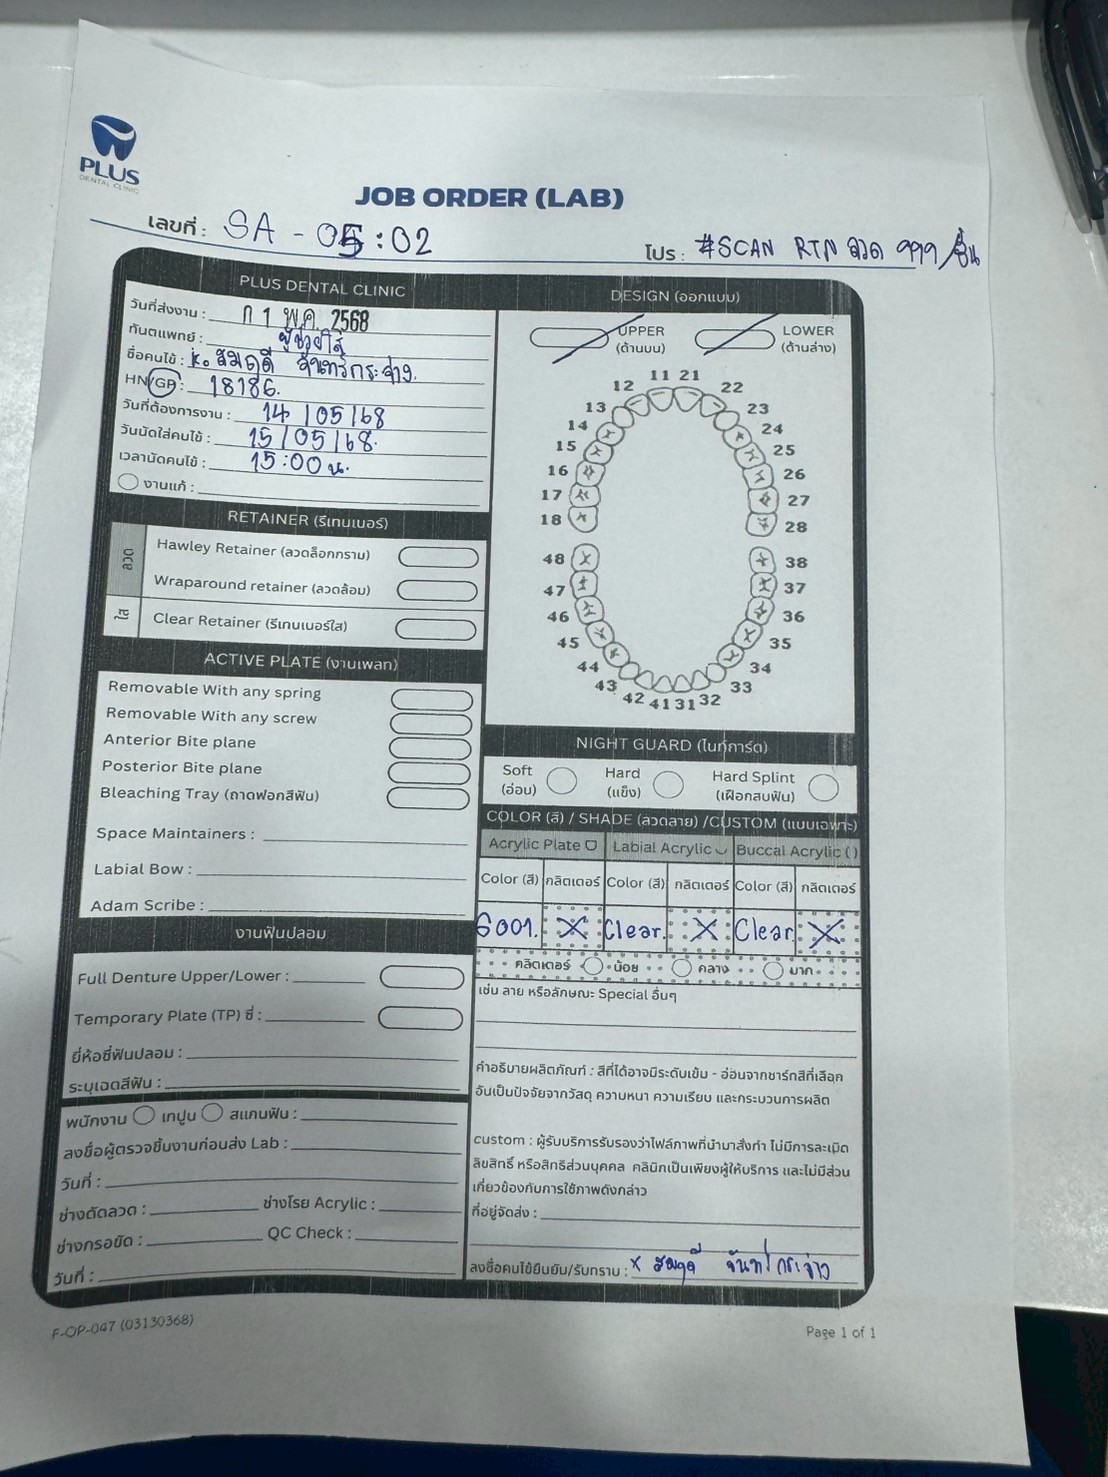 PLUS
DENTAL CLINIC
JOB ORDER (LAB)
เลขที่ : SA - 05 : 02
โปร : #SCAN RTN ลวด 999/ชิ้น
PLUS DENTAL CLINIC
วันที่ส่งงาน : 01 พ.ค. 2568
ทันตแพทย์ : ผู้ช่วยใส่
ชื่อคนไข้ : k. สมฤดี จันทร์กระจ่าง.
HN/GP : 18186.
วันที่ต้องการงาน : 14/05/68
วันนัดใส่คนไข้ : 15/05/68.
เวลานัดคนไข้ : 15:00 น.
งานแก้ :
RETAINER (รีเทนเนอร์)
ลวด
Hawley Retainer (ลวดล็อกกราม)
Wraparound retainer (ลวดล้อม)
ใส
Clear Retainer (รีเทนเนอร์ใส)
ACTIVE PLATE (งานเพลท)
Removable With any spring
Removable With any screw
Anterior Bite plane
Posterior Bite plane
Bleaching Tray (ถาดฟอกสีฟัน)
Space Maintainers :
Labial Bow :
Adam Scribe :
งานฟันปลอม
Full Denture Upper/Lower :
Temporary Plate (TP) ซี่ :
ยี่ห้อซี่ฟันปลอม :
ระบุเฉดสีฟัน :
พนักงาน เทปูน สแกนฟัน :
ลงชื่อผู้ตรวจชิ้นงานก่อนส่ง Lab :
วันที่ :
ช่างดัดลวด : ช่างโรย Acrylic :
ช่างกรอขัด : QC Check :
วันที่ :
DESIGN (ออกแบบ)
UPPER LOWER
(ด้านบน) (ด้านล่าง)
11 21
12 22
13 23
14 24
15 25
16 26
17 27
18 28
48 38
47 37
46 36
45 35
44 34
43 33
42 41 31 32
NIGHT GUARD (ไนท์การ์ด)
Soft Hard Hard Splint
(อ่อน) (แข็ง) (เฝือกสบฟัน)
COLOR (สี) / SHADE (ลวดลาย) /CUSTOM (แบบเฉพาะ)
Acrylic Plate Labial Acrylic Buccal Acrylic ( )
Color (สี) กลิตเตอร์ Color (สี) กลิตเตอร์ Color (สี) กลิตเตอร์
G001. X Clear. X Clear. X
กลิตเตอร์ น้อย กลาง มาก
เช่น ลาย หรือลักษณะ Special อื่นๆ
คำอธิบายผลิตภัณฑ์ : สีที่ได้อาจมีระดับเข้ม - อ่อนจากชาร์ทสีที่เลือก
อันเป็นปัจจัยจากวัสดุ ความหนา ความเรียบ และกระบวนการผลิต
custom : ผู้รับบริการรับรองว่าไฟล์ภาพที่นำมาสั่งทำ ไม่มีการละเมิด
ลิขสิทธิ์ หรือสิทธิส่วนบุคคล คลินิกเป็นเพียงผู้ให้บริการ และไม่มีส่วน
เกี่ยวข้องกับการใช้ภาพดังกล่าว
ที่อยู่จัดส่ง :
ลงชื่อคนไข้ยืนยัน/รับทราบ : x สมฤดี จันทร์กระจ่าง
F-OP-047 (03130368)
Page 1 of 1